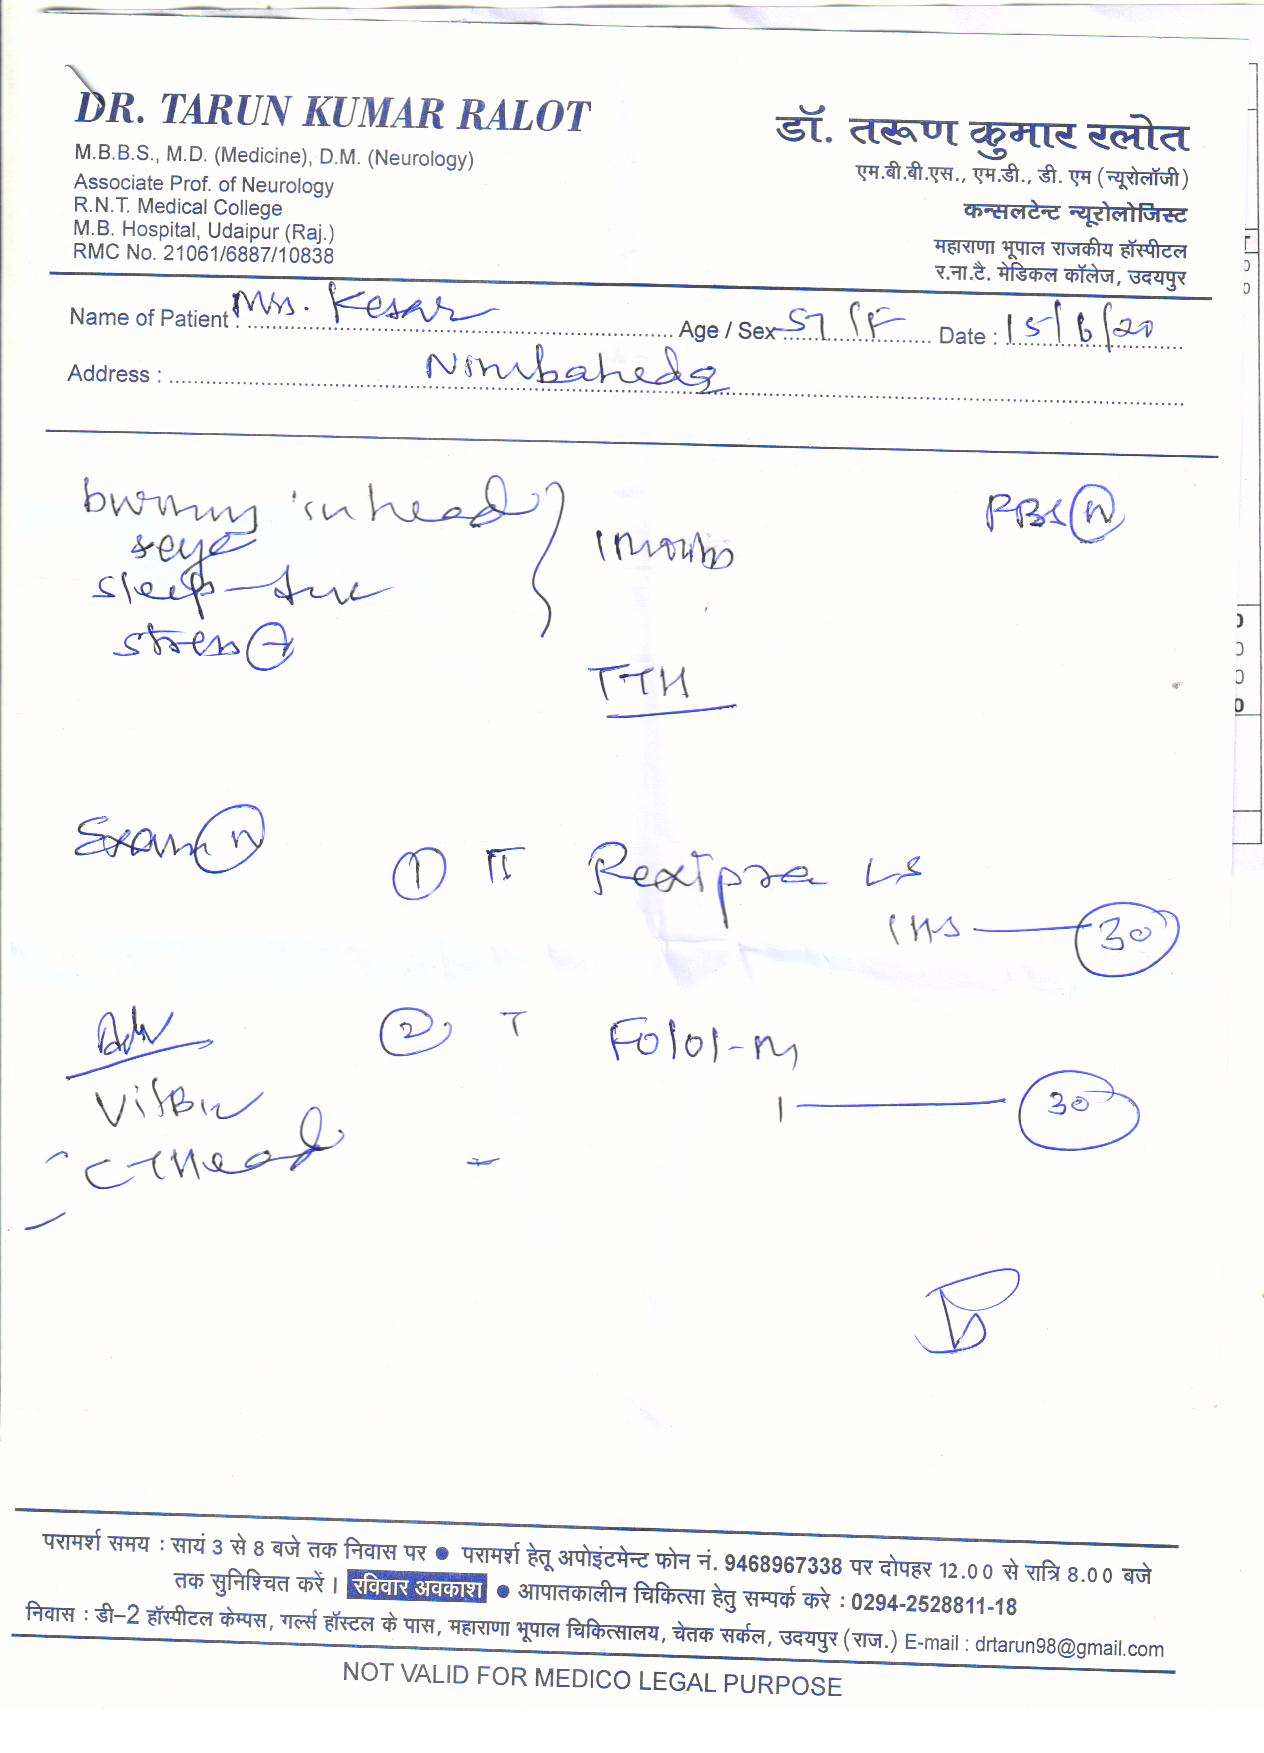 DR. TARUN KUMAR RALOT
M.B.B.S., M.D. (Medicine), D.M. (Neurology)
Associate Prof. of Neurology
R.N.T. Medical College
M.B. Hospital, Udaipur (Raj.)
RMC No. 21061/6887/10838
डॉ. तरूण कुमार रलोत
एम.बी.बी.एस., एम.डी., डी. एम (न्यूरोलॉजी)
कन्सलटेन्ट न्यूरोलोजिस्ट
महाराणा भूपाल राजकीय हॉस्पीटल
र.ना.टै. मेडिकल कॉलेज, उदयपुर
Name of Patient : Mrs. Kesar Age / Sex 57/F Date : 15/6/20
Address : Nimbaheda
burning in head
eye
sleep
stress +
1 months
RBS N
TTH
Exam N
1 T Rexipra LS
1 HS 30
2 T
1 30
Adv
Vit B12
CT Head
परामर्श समय : सायं 3 से 8 बजे तक निवास पर ● परामर्श हेतू अपोइंटमेन्ट फोन नं. 9468967338 पर दोपहर 12.00 से रात्रि 8.00 बजे
तक सुनिश्चित करें । रविवार अवकाश ● आपातकालीन चिकित्सा हेतु सम्पर्क करे : 0294-2528811-18
निवास : डी–2 हॉस्पीटल केम्पस, गर्ल्स हॉस्टल के पास, महाराणा भूपाल चिकित्सालय, चेतक सर्कल, उदयपुर (राज.) E-mail : drtarun98@gmail.com
NOT VALID FOR MEDICO LEGAL PURPOSE